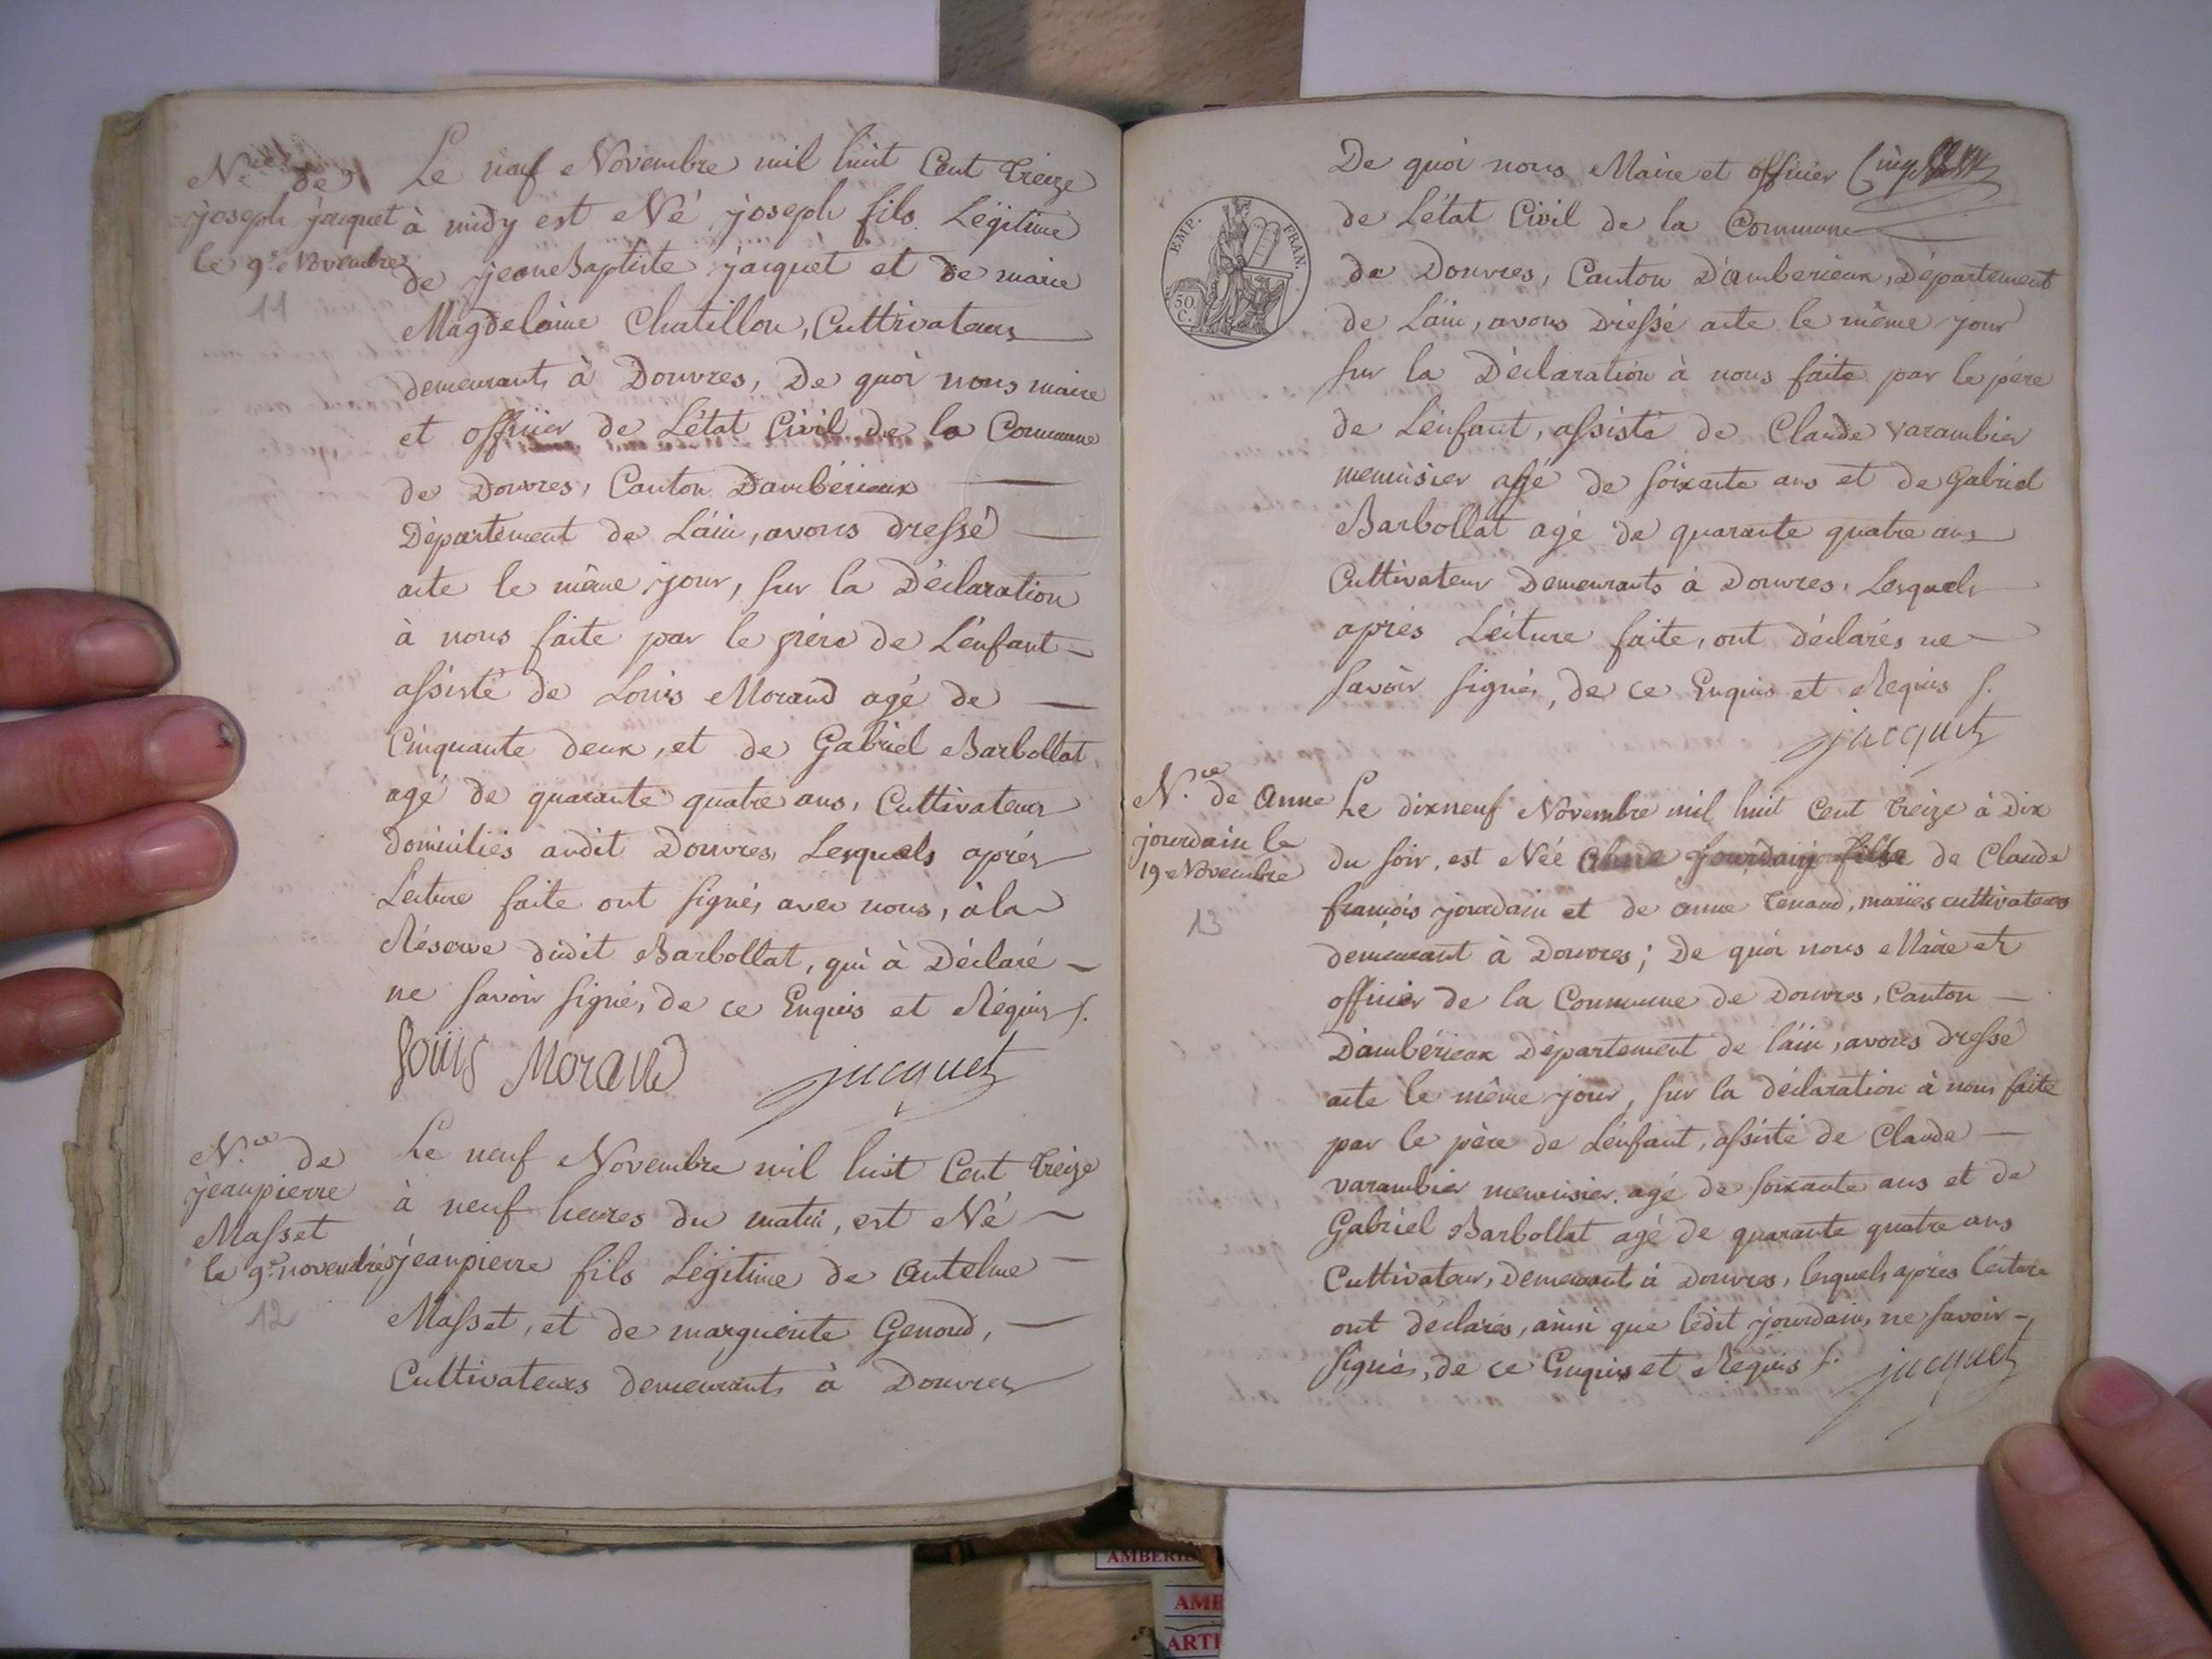 N.ce de
joseph jacquet
le 9.e Novembre
11
Le neuf Novembre mil huit Cent treize
à midy est Né joseph fils Légitime
de jean Baptiste jacquet et de marie
Magdelaine Chatillon, Cultivateurs
demeurants à Douvres, De quoi nous maire
et officier de L'état Civil de la Commune
de Douvres, Canton D'ambérieux
Département de L'ain, avons dressé
acte le même jour, sur la Déclaration
à nous faite par le père de L'enfant
assisté de Louis Morand agé de
Cinquante deux, et de Gabriel Barbollat
agé de quarante quatre ans, Cultivateurs
domiciliés audit Douvres, Lesquels après
Lecture faite ont signés avec nous, à la
Réserve dudit Barbollat, qui à Déclaré
ne savoir signé, de ce Enquis et Réquis
Louis Morand jacquet
N.ce de
jeanpierre
Masset
le 9.e novembre
12
Le neuf Novembre mil huit Cent treize
à neuf heures du matin, est Né
jeanpierre fils Légitime de Antelme
Masset, et de marguerite Genoud,
Cultivateurs demeurants à Douvres
De quoi nous Maire et officier Cinq
EMP. FRAN.
50 C.
de L'état Civil de la Commune
de Douvres, Canton D'amberieux, Département
de L'ain, avons Dressé acte le même jour
sur la Déclaration à nous faite par le père
de L'enfant, assisté de Claude varambier
menuisier agé de soixante ans et de Gabriel
Barbollat agé de quarante quatre ans
Cultivateur Demeurants à Douvres, Lesquels
après Lecture faite, ont déclarés ne
savoir signés, de ce Enquis et Requis
jacquet
N.ce de Anne
jourdain le
19 Novembre
13
Le dixneuf Novembre mil huit Cent treize à Dix
du soir, est Née Anne jourdain fille de Claude
françois jourdain et de anne tenaud, mariés cultivateurs
demeurant à Douvres; De quoi nous Maire et
officier de la Commune de Douvres, Canton
D'ambérieux Département de l'ain, avons dressé
acte le même jour, sur la déclaration à nous faite
par le père de L'enfant, assisté de Claude
varambier menuisier agé de soixante ans et de
Gabriel Barbollat agé de quarante quatre ans
Cultivateur, Demeurants à Douvres, lesquels après lecture
ont déclarés, ainsi que ledit jourdain, ne savoir
signés, de ce Enquis et Requis jacquet
AMBERIE
AMB
ARTI